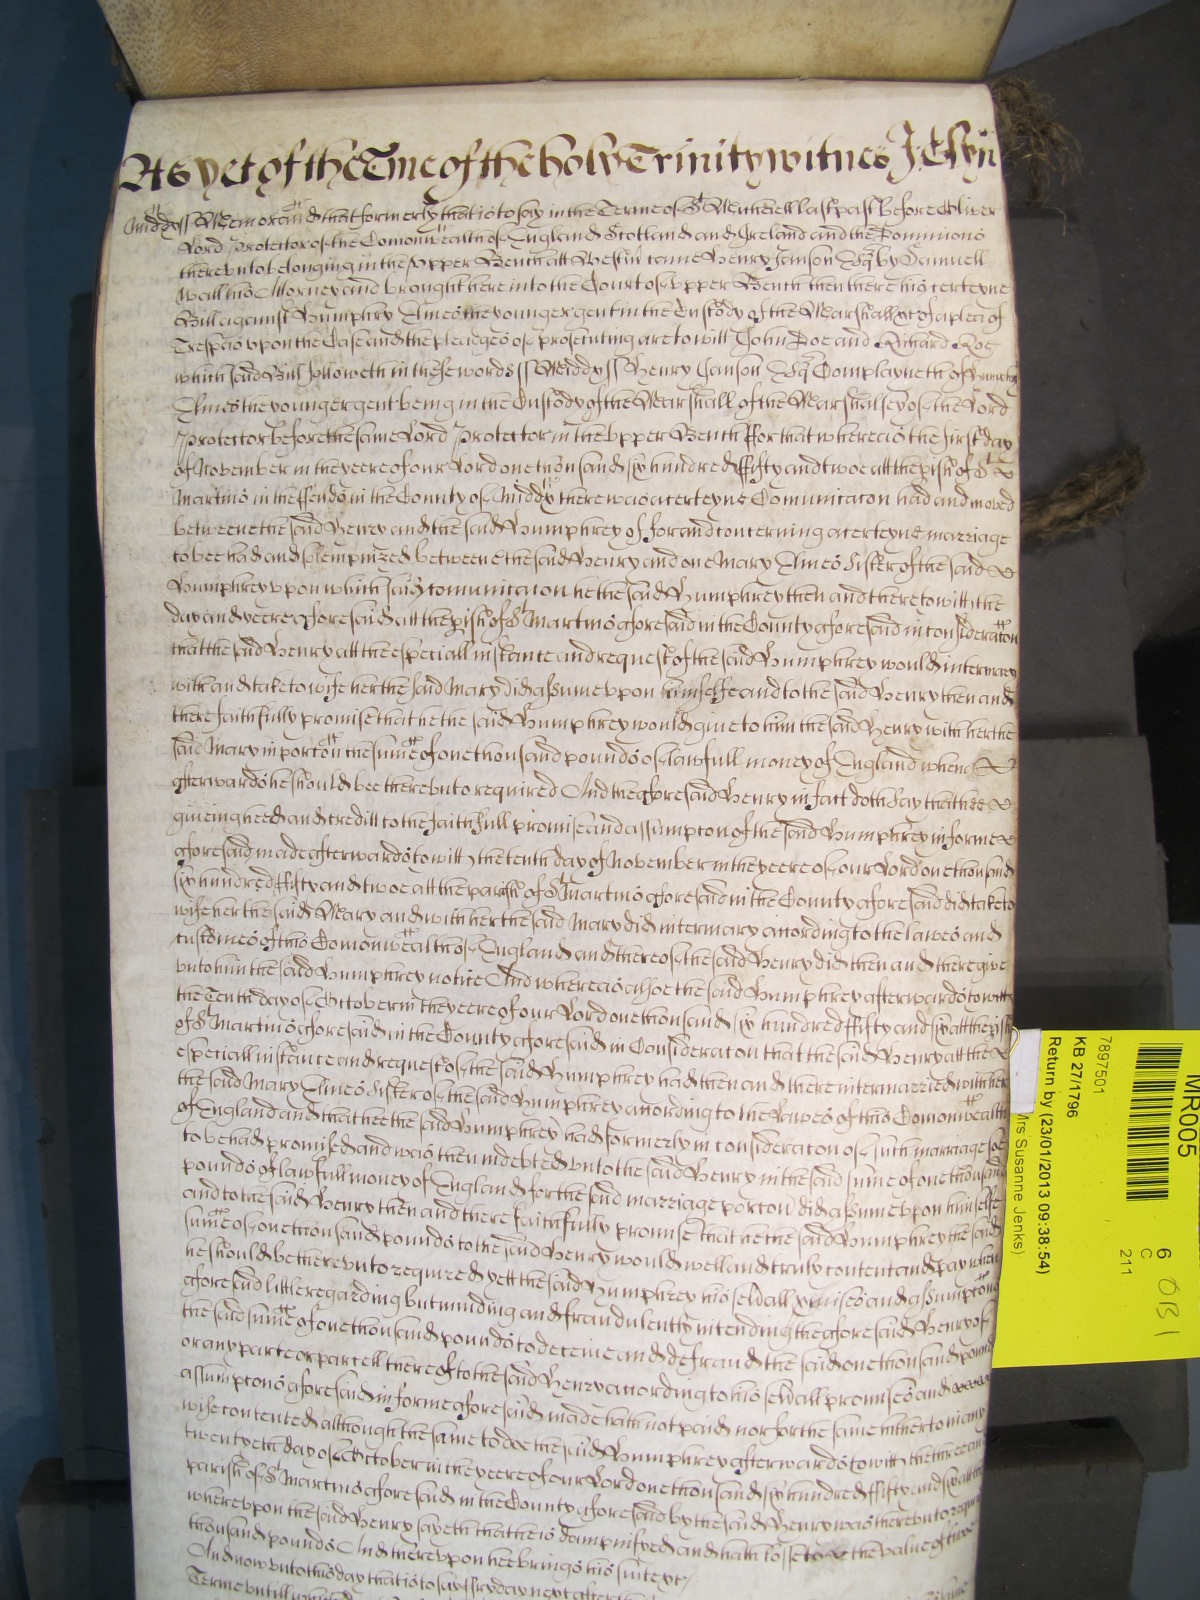 As yet of the Tme of the holy Trinity witnes J: Glyn
Midd~ ss Memorand that formerly that is to say in the Terme of St Michaell last past before Oliver
Lord Protector of the Comonwealth of England Scotland and Ireland and the Dominions
thereunto belonging in the Upper Bench att Westm came Henry Janson Esq by Samuell
Wall his Attorney and brought here into the Court of upper Bench then there his certeyne
Bill against Humphry Elmes the younger gent in the Custody of the Marshall &c of a plea of
Trespas upon the Case and the pledges of prosecuting are to witt John Doe and Richard Roe
which said Bill followeth in these words ss Midd~ ss Henry Janson Esq Complayneth of Humfry
Elmes the younger gent being in the Custody of the Marshall of the Marshalsey of the Lord
Protector before the same Lord Protector in the upper Bench For that whereas the first day
of November in the yeere of our Lord one thousand six hundred fifty and twoe att the pish of St
Martins in the ffeilds in the County of Midd~ there was a certeyne Comunicacon had and moved
betweene the said Henry and the said Humphrey of for and concerning a certeyne marriage
to bee had and solempnized betweene the said Henry and one Mary Elmes Sister of the said
Humphrey upon which said comunicacon he the said Humphrey then and there to witt the
day and yeere aforesaid att the pish of St Martins aforesaid in the County aforesaid in consideracon
that the said Henry att the especiall instance and request of the said Humphrey would intermary
with and take to wife her the said Mary did assume upon himselfe and to the said Henry then and
there faithfully promise that he the said Humphrey would give to him the said Henry with her the
said Mary in porcon the sume of one thousand pounds of lawfull money of England when
afterwards he should bee thereunto required And the aforesaid Henry in fact doth say that hee
giveing heed and creditt to the faithfull promise and assumpcon of the said Humphrey in forme
aforesaid made afterwards to witt the tenth day of November in the yeere of our Lord one thousand
six hundred fifty and twoe att the parish of St Martins aforesaid in the County aforesaid did take to
wife her the said Mary and with her the said Mary did intermary according to the lawes and
customes of this Comonwealth of England and thereof the said Henry did then and there give
unto him the said Humphrey notice And whereas alsoe the said Humphrey afterwards to witt
the Tenth day of October in the yeere of our Lord one thousand six hundred fifty and six att the pish
of St Martins aforesaid in the County aforesaid in Consideracon that the said Henry att the
especiall instance and request of the said Humphrey had then and there intermarried with her
the said Mary Elmes Sister of the said Humphrey according to the Lawes of this Comonwealth
of England and that hee the said Humphrey had formerly in consideracon of such marriage soe
to be had promised and was then indebted unto the said Henry in the said sume of one thousand
pounds of lawfull money of England for the said marriage porcon did assume upon himselfe
and to the said Henry then and there faithfully promise that he the said Humphrey the said
sume of one thousand pounds to the said Henry would well and truly content and pay when
he should be thereunto required yett the said Humphrey his sevall pmises and assumpcons
aforesaid little regarding but minding and fraudulently intending the aforesaid Henry of
the said sume of one thousand pounds to deceive and defraud the said one thousand pounds
or any parte or parcell thereof to the said Henry according to his sevall promises and
assumpcons aforesaid in forme aforesaid made hath not paid nor for the same hitherto in any
wise contented although the same to doe the said Humphrey afterwards to witt the three and
twentyeth day of October in the yeere of our Lord one thousand six hundred fifty and six att the
parish of St Martins aforesaid in the County aforesaid by the said Henry was thereunto required
whereupon the said Henry sayeth that he is dampnifyed and hath losse to the value of twoe
thousand pounds And thereupon hee brings his suite &c/
And now unto this day that is to say ffryday next after the
Terme untill which
MR005
7897501
KB 27/1796
Return by (23/01/2013 09:38:54)
Mrs Susanne Jenks)
6
C
211
OB1